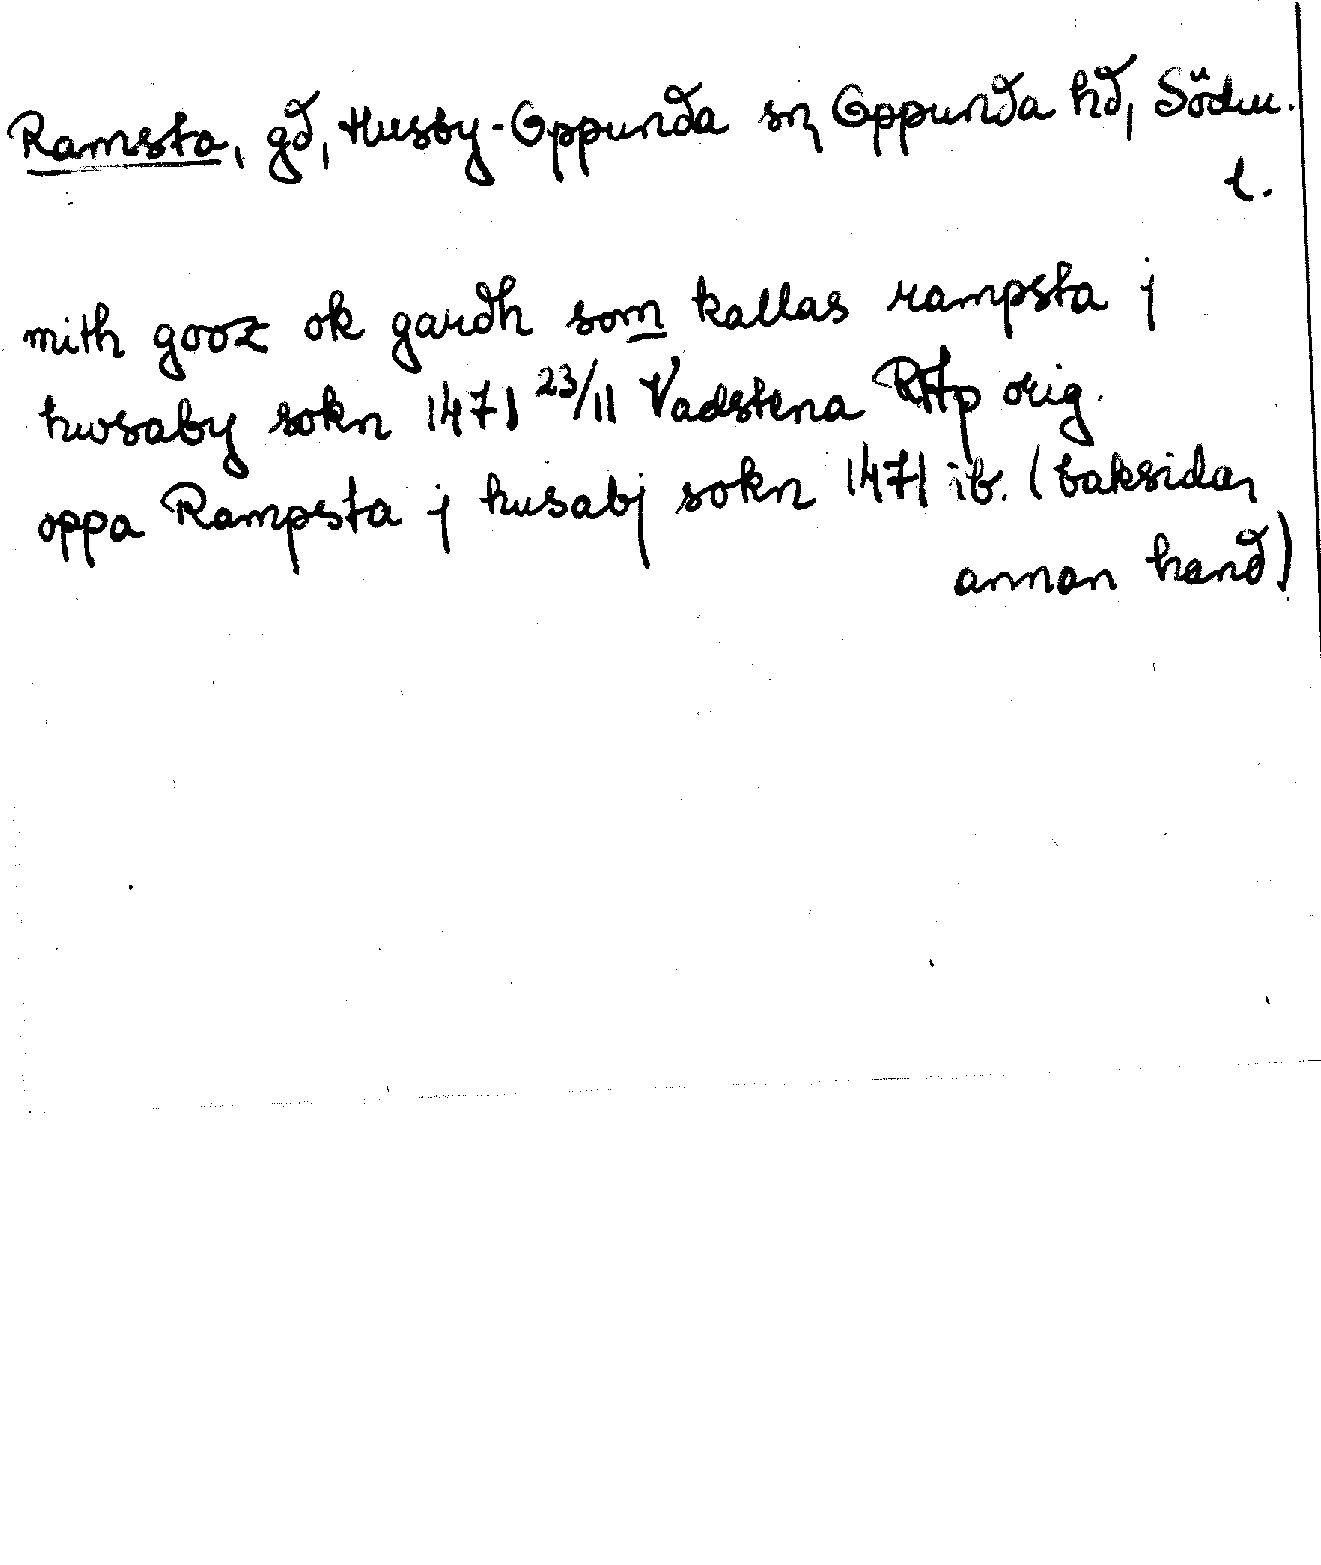 Ramsta, gd, Husby-Oppunda sn, Oppunda hd, Söderm.
l.
mith gooz ok gardh som kallas rampsta j
hwsaby sokn 1471 23/11 Vadstena RAp orig.
oppa Rampsta j husabj sokn 1471 ib. (baksidan,
annan hand)